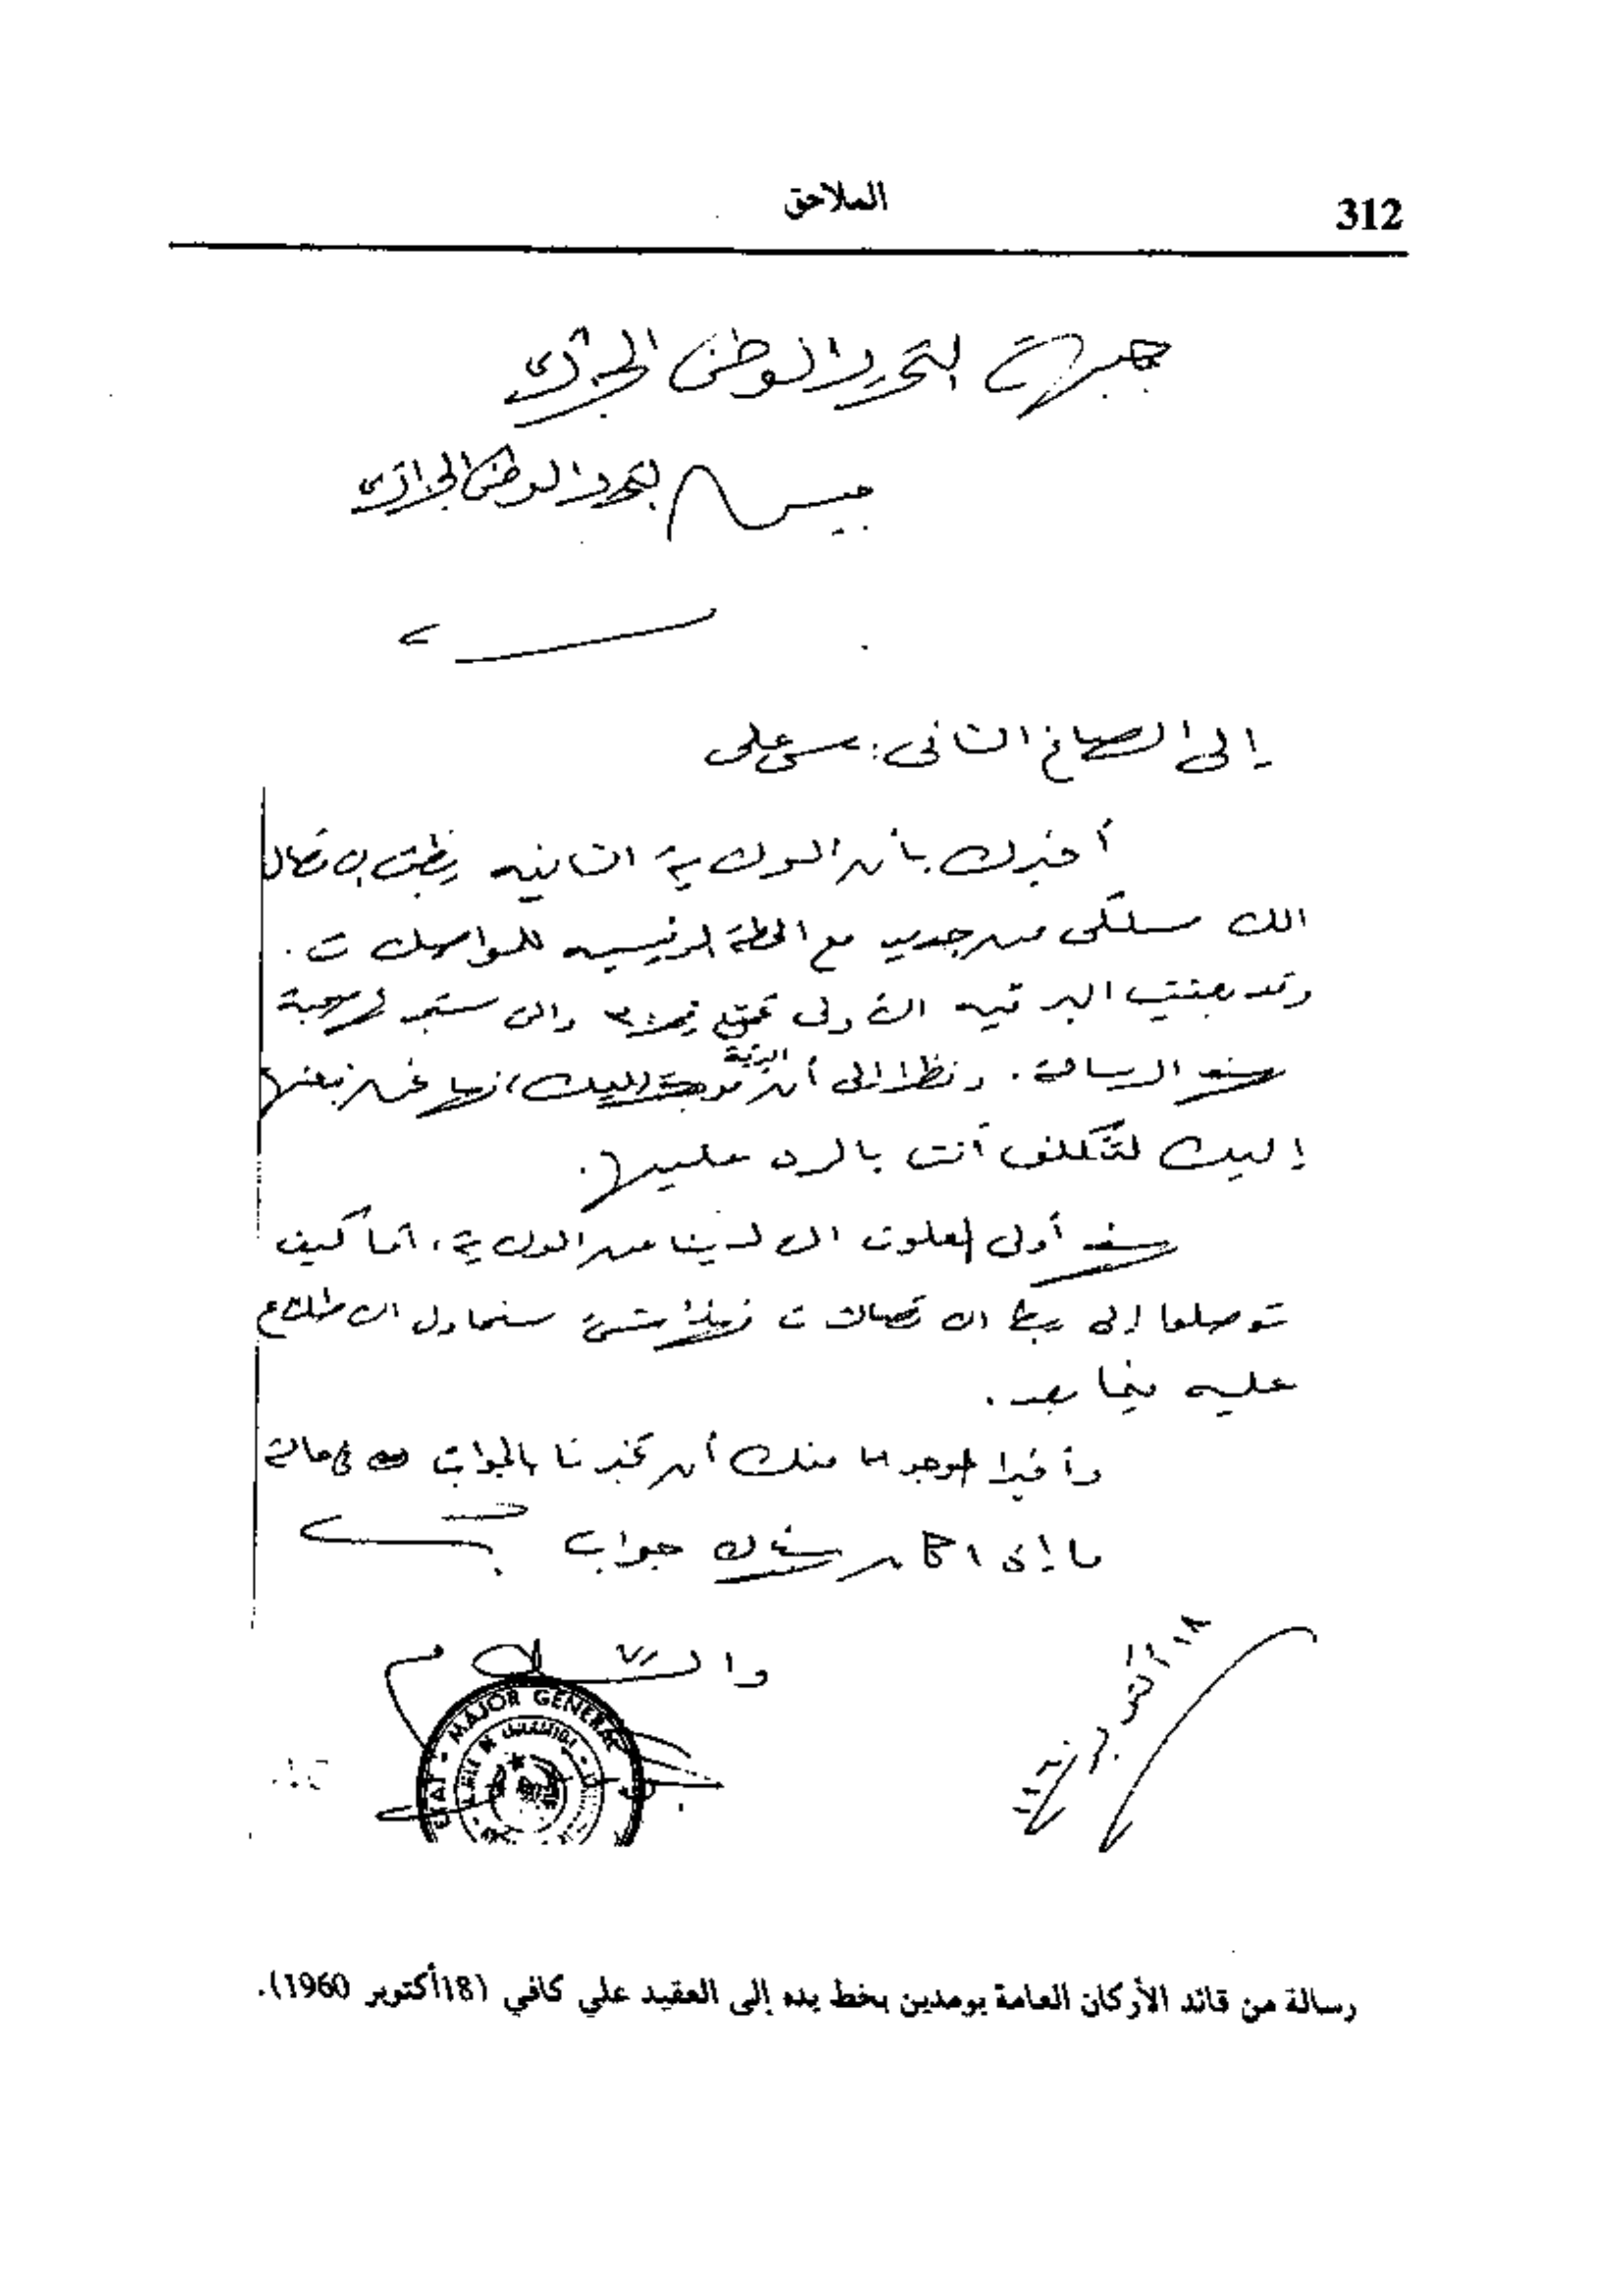 312
الملاحق
جبهة التحرير الوطني الجزائري
جيش التحرير الوطني الجزائري
إلى الصاغ الثاني: سي علي
أخبرك بأن الولاية الثانية الاتصال
اللاسلكي من جديد مع المحطة الرئيسية للمواصلات.
وقد بعثت البرقية الأولى والتي ستجد صحبة
هذه الرسالة. ونظرا إلى أن البرقية موجهة إليك، فها نحن نبعثها
إليك لتتكلف أنت بالرد عليها.
هذه أولى المعلومات التي لدينا عن الولاية، أما كيف
توصلوا إلى ربط الاتصالات فهذا شيء سنحاول الاطلاع
عليه فيما بعد.
وأخيرا المرجو منك أن تخبرنا بالجواب في حالة
ما إذا كان هناك جواب
والسلام
١٨ أكتوبر ٦٠
MAJOR GENERAL
رسالة من قائد الأركان العامة بومدين بخط يده إلى العقيد علي كافي (18أكتوبر 1960).